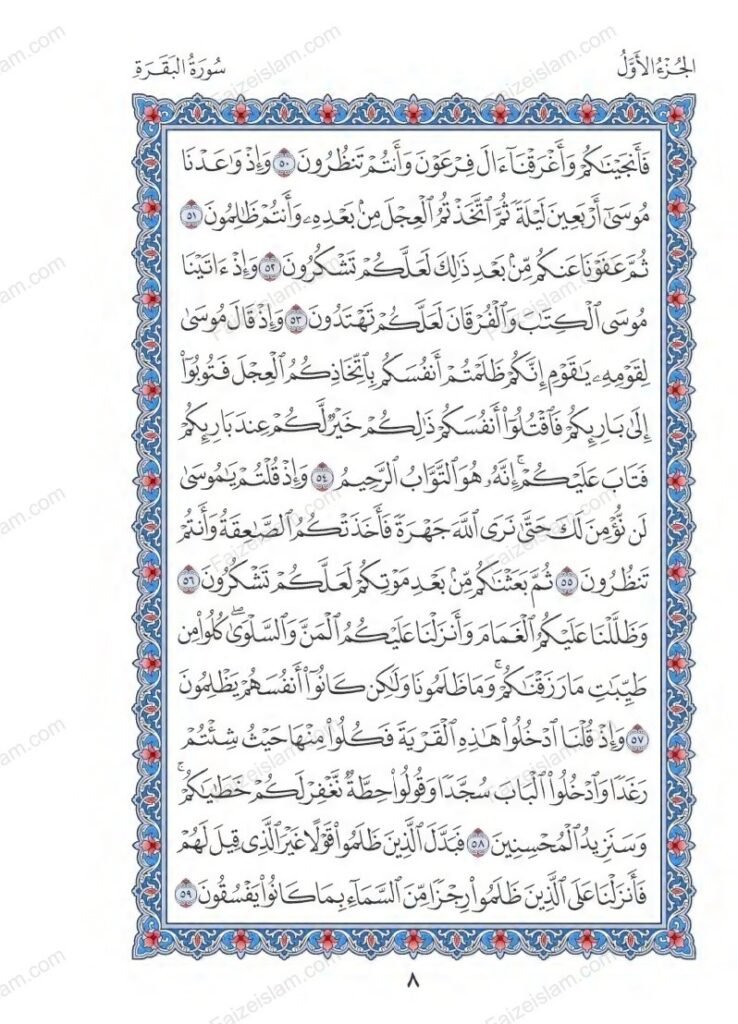 الجُزْءُ الأَوَّلُ
سُورَةُ البَقَرَةِ
فَأَنجَيْنَٰكُمْ وَأَغْرَقْنَآ ءَالَ فِرْعَوْنَ وَأَنتُمْ تَنظُرُونَ ٥٠ وَإِذْ وَٰعَدْنَا
مُوسَىٰٓ أَرْبَعِينَ لَيْلَةً ثُمَّ ٱتَّخَذْتُمُ ٱلْعِجْلَ مِنۢ بَعْدِهِۦ وَأَنتُمْ ظَٰلِمُونَ ٥١
ثُمَّ عَفَوْنَا عَنكُم مِّنۢ بَعْدِ ذَٰلِكَ لَعَلَّكُمْ تَشْكُرُونَ ٥٢ وَإِذْ ءَاتَيْنَا
مُوسَى ٱلْكِتَٰبَ وَٱلْفُرْقَانَ لَعَلَّكُمْ تَهْتَدُونَ ٥٣ وَإِذْ قَالَ مُوسَىٰ
لِقَوْمِهِۦ يَٰقَوْمِ إِنَّكُمْ ظَلَمْتُمْ أَنفُسَكُم بِٱتِّخَاذِكُمُ ٱلْعِجْلَ فَتُوبُوٓا۟
إِلَىٰ بَارِئِكُمْ فَٱقْتُلُوٓا۟ أَنفُسَكُمْ ذَٰلِكُمْ خَيْرٌ لَّكُمْ عِندَ بَارِئِكُمْ
فَتَابَ عَلَيْكُمْ ۚ إِنَّهُۥ هُوَ ٱلتَّوَّابُ ٱلرَّحِيمُ ٥٤ وَإِذْ قُلْتُمْ يَٰمُوسَىٰ
لَن نُّؤْمِنَ لَكَ حَتَّىٰ نَرَى ٱللَّهَ جَهْرَةً فَأَخَذَتْكُمُ ٱلصَّٰعِقَةُ وَأَنتُمْ
تَنظُرُونَ ٥٥ ثُمَّ بَعَثْنَٰكُم مِّنۢ بَعْدِ مَوْتِكُمْ لَعَلَّكُمْ تَشْكُرُونَ ٥٦
وَظَلَّلْنَا عَلَيْكُمُ ٱلْغَمَامَ وَأَنزَلْنَا عَلَيْكُمُ ٱلْمَنَّ وَٱلسَّلْوَىٰ ۖ كُلُوا۟ مِن
طَيِّبَٰتِ مَا رَزَقْنَٰكُمْ ۖ وَمَا ظَلَمُونَا وَلَٰكِن كَانُوٓا۟ أَنفُسَهُمْ يَظْلِمُونَ
٥٧ وَإِذْ قُلْنَا ٱدْخُلُوا۟ هَٰذِهِ ٱلْقَرْيَةَ فَكُلُوا۟ مِنْهَا حَيْثُ شِئْتُمْ
رَغَدًا وَٱدْخُلُوا۟ ٱلْبَابَ سُجَّدًا وَقُولُوا۟ حِطَّةٌ نَّغْفِرْ لَكُمْ خَطَٰيَٰكُمْ ۚ
وَسَنَزِيدُ ٱلْمُحْسِنِينَ ٥٨ فَبَدَّلَ ٱلَّذِينَ ظَلَمُوا۟ قَوْلًا غَيْرَ ٱلَّذِى قِيلَ لَهُمْ
فَأَنزَلْنَا عَلَى ٱلَّذِينَ ظَلَمُوا۟ رِجْزًا مِّنَ ٱلسَّمَآءِ بِمَا كَانُوا۟ يَفْسُقُونَ ٥٩
٨
Faizeislam.com